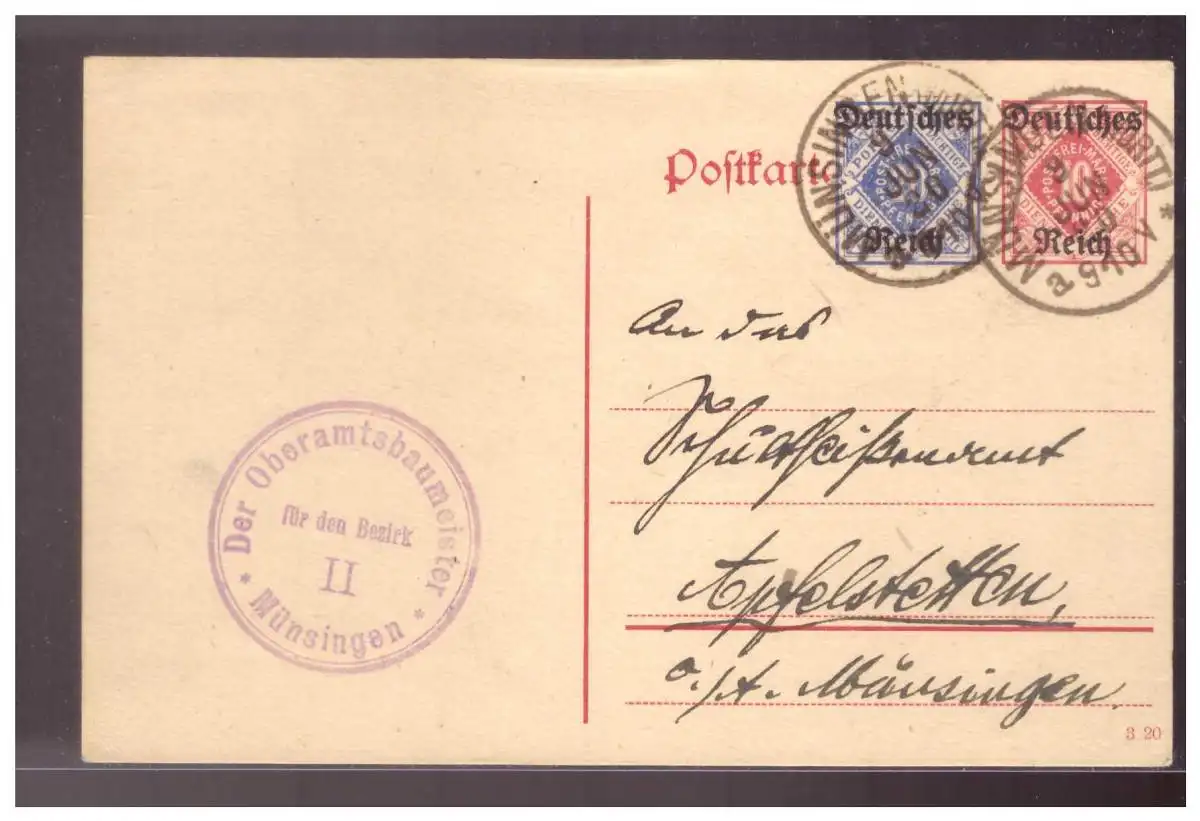 Postkarte
Deutsches
Reich
Deutsches
Reich
MÜNSINGEN
9 JUN 20
9-10 V
An das
Schultheißenamt
Apfelstetten,
o./A. Münsingen.
Der Oberamtsbaumeister
für den Bezirk
II
* Münsingen *
3 20